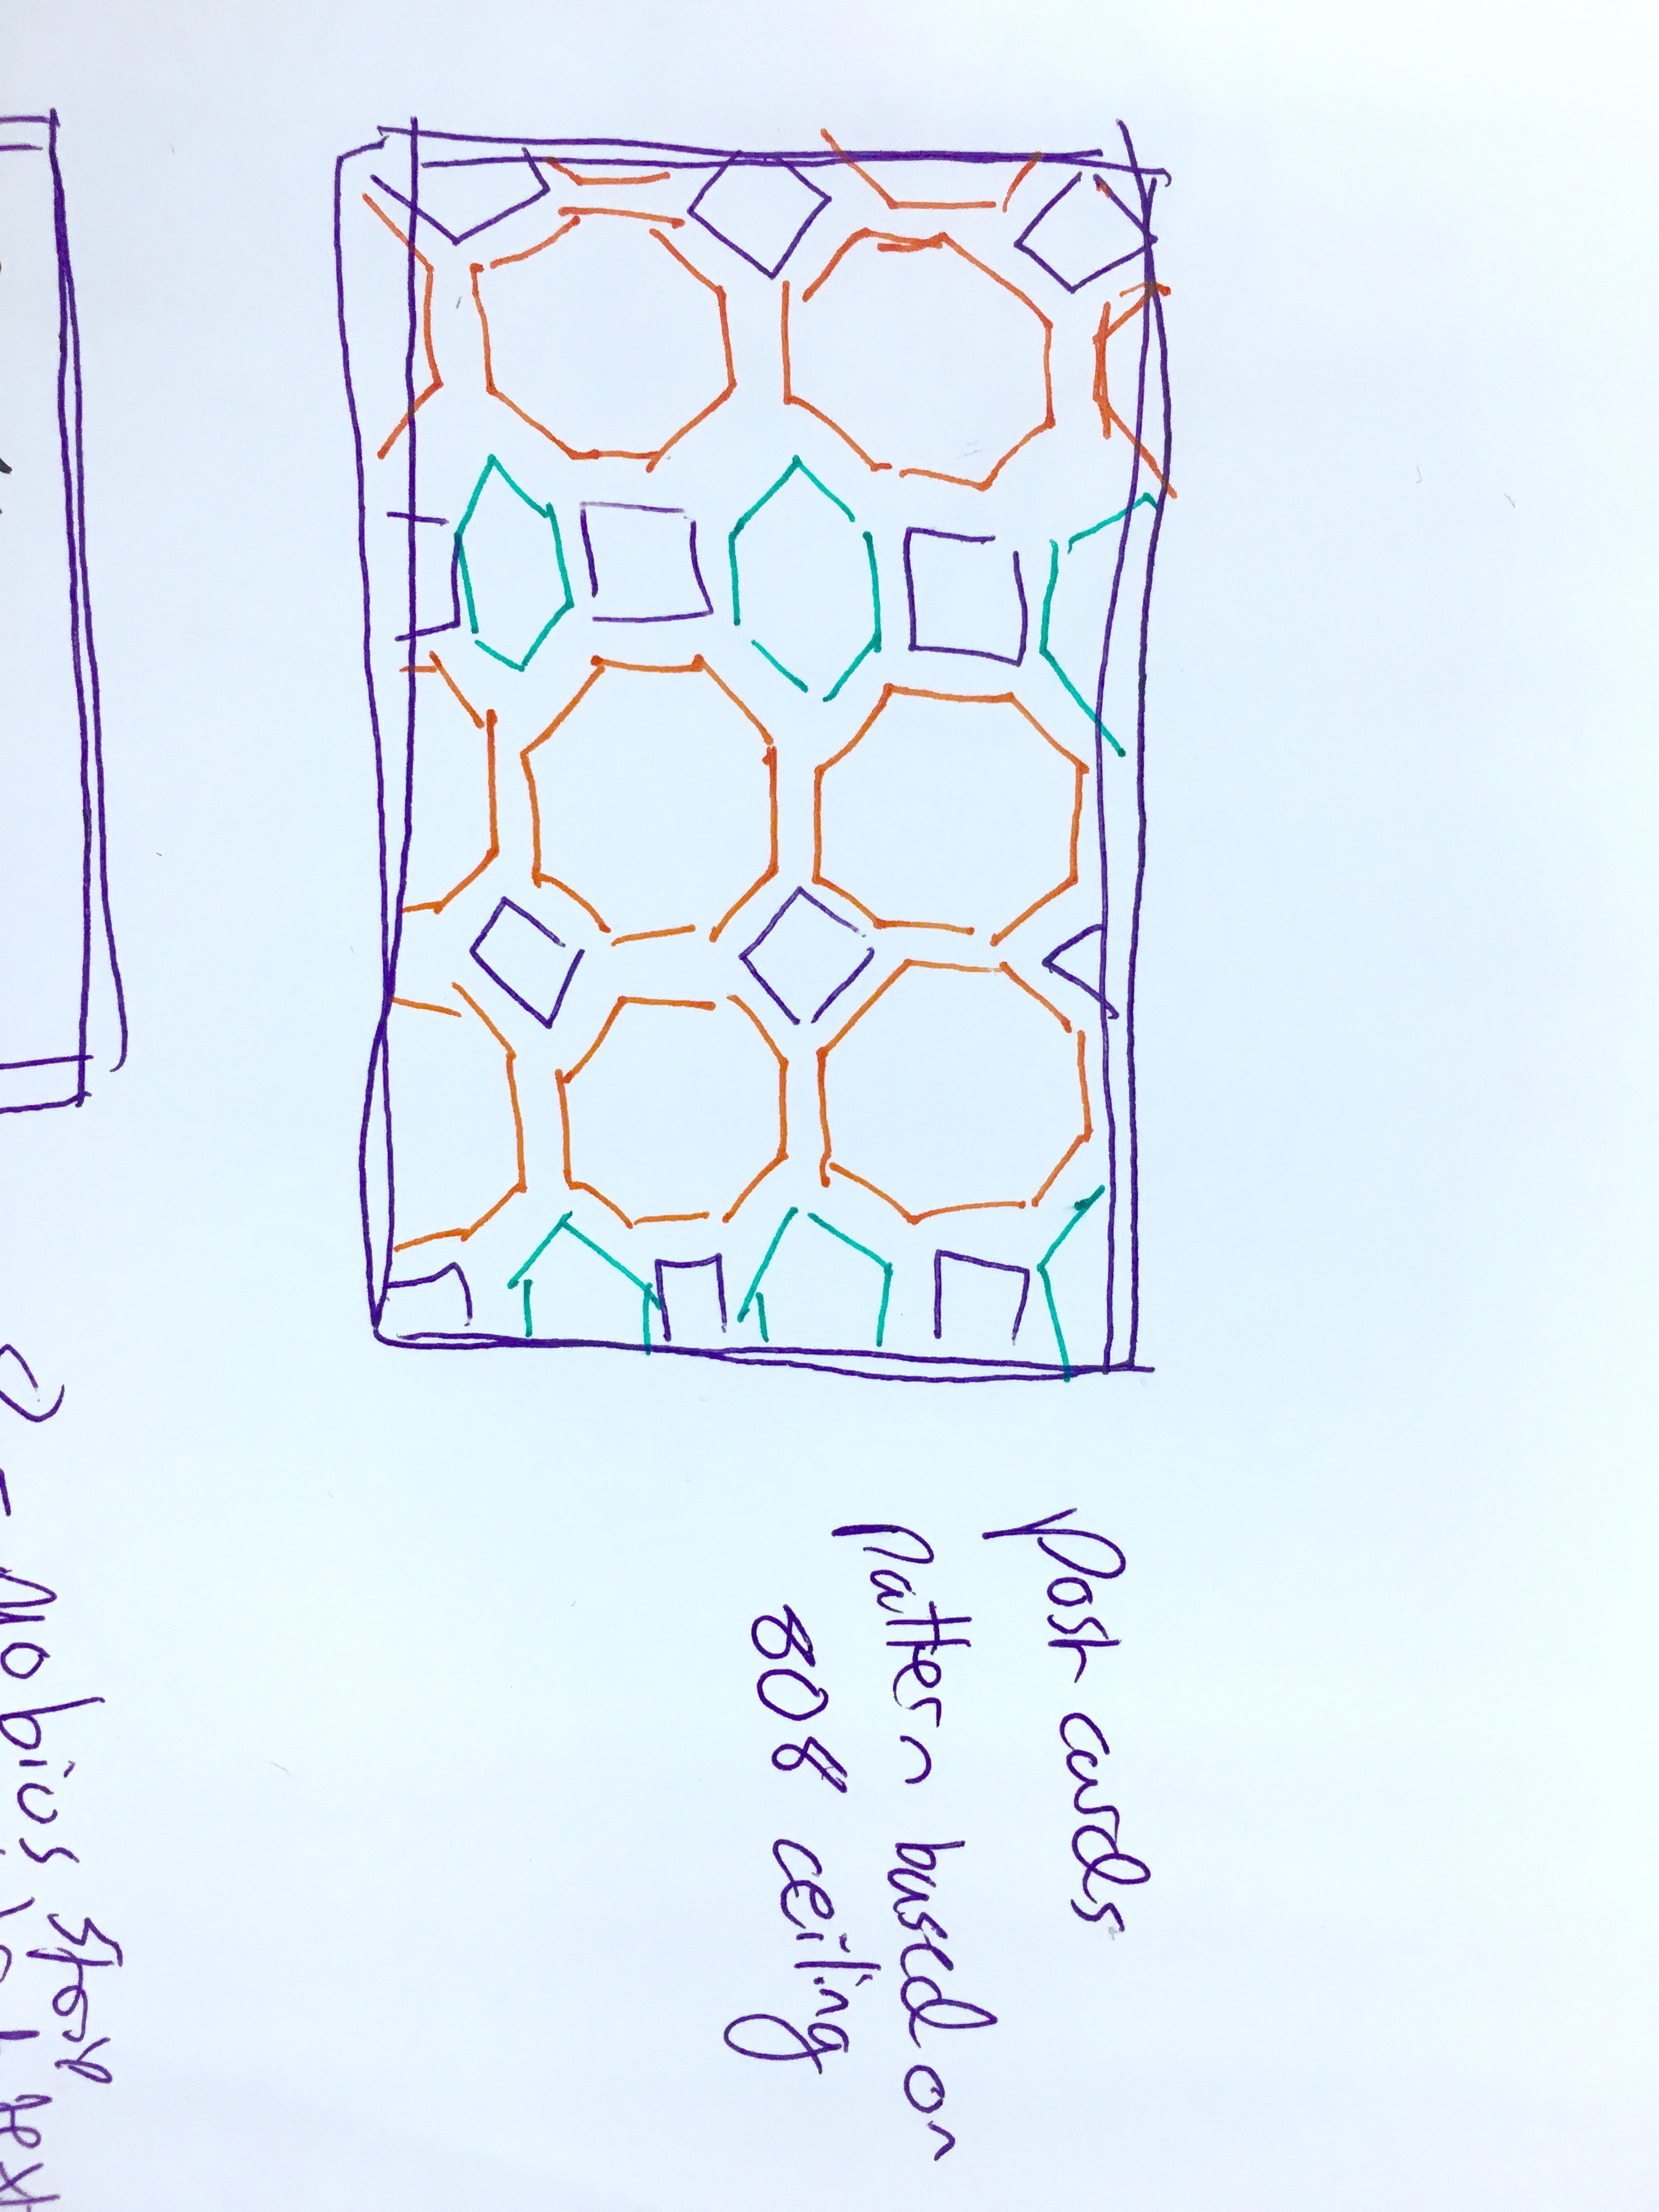 Post cards
Pattern based on
808 ceiling
Mobius strip